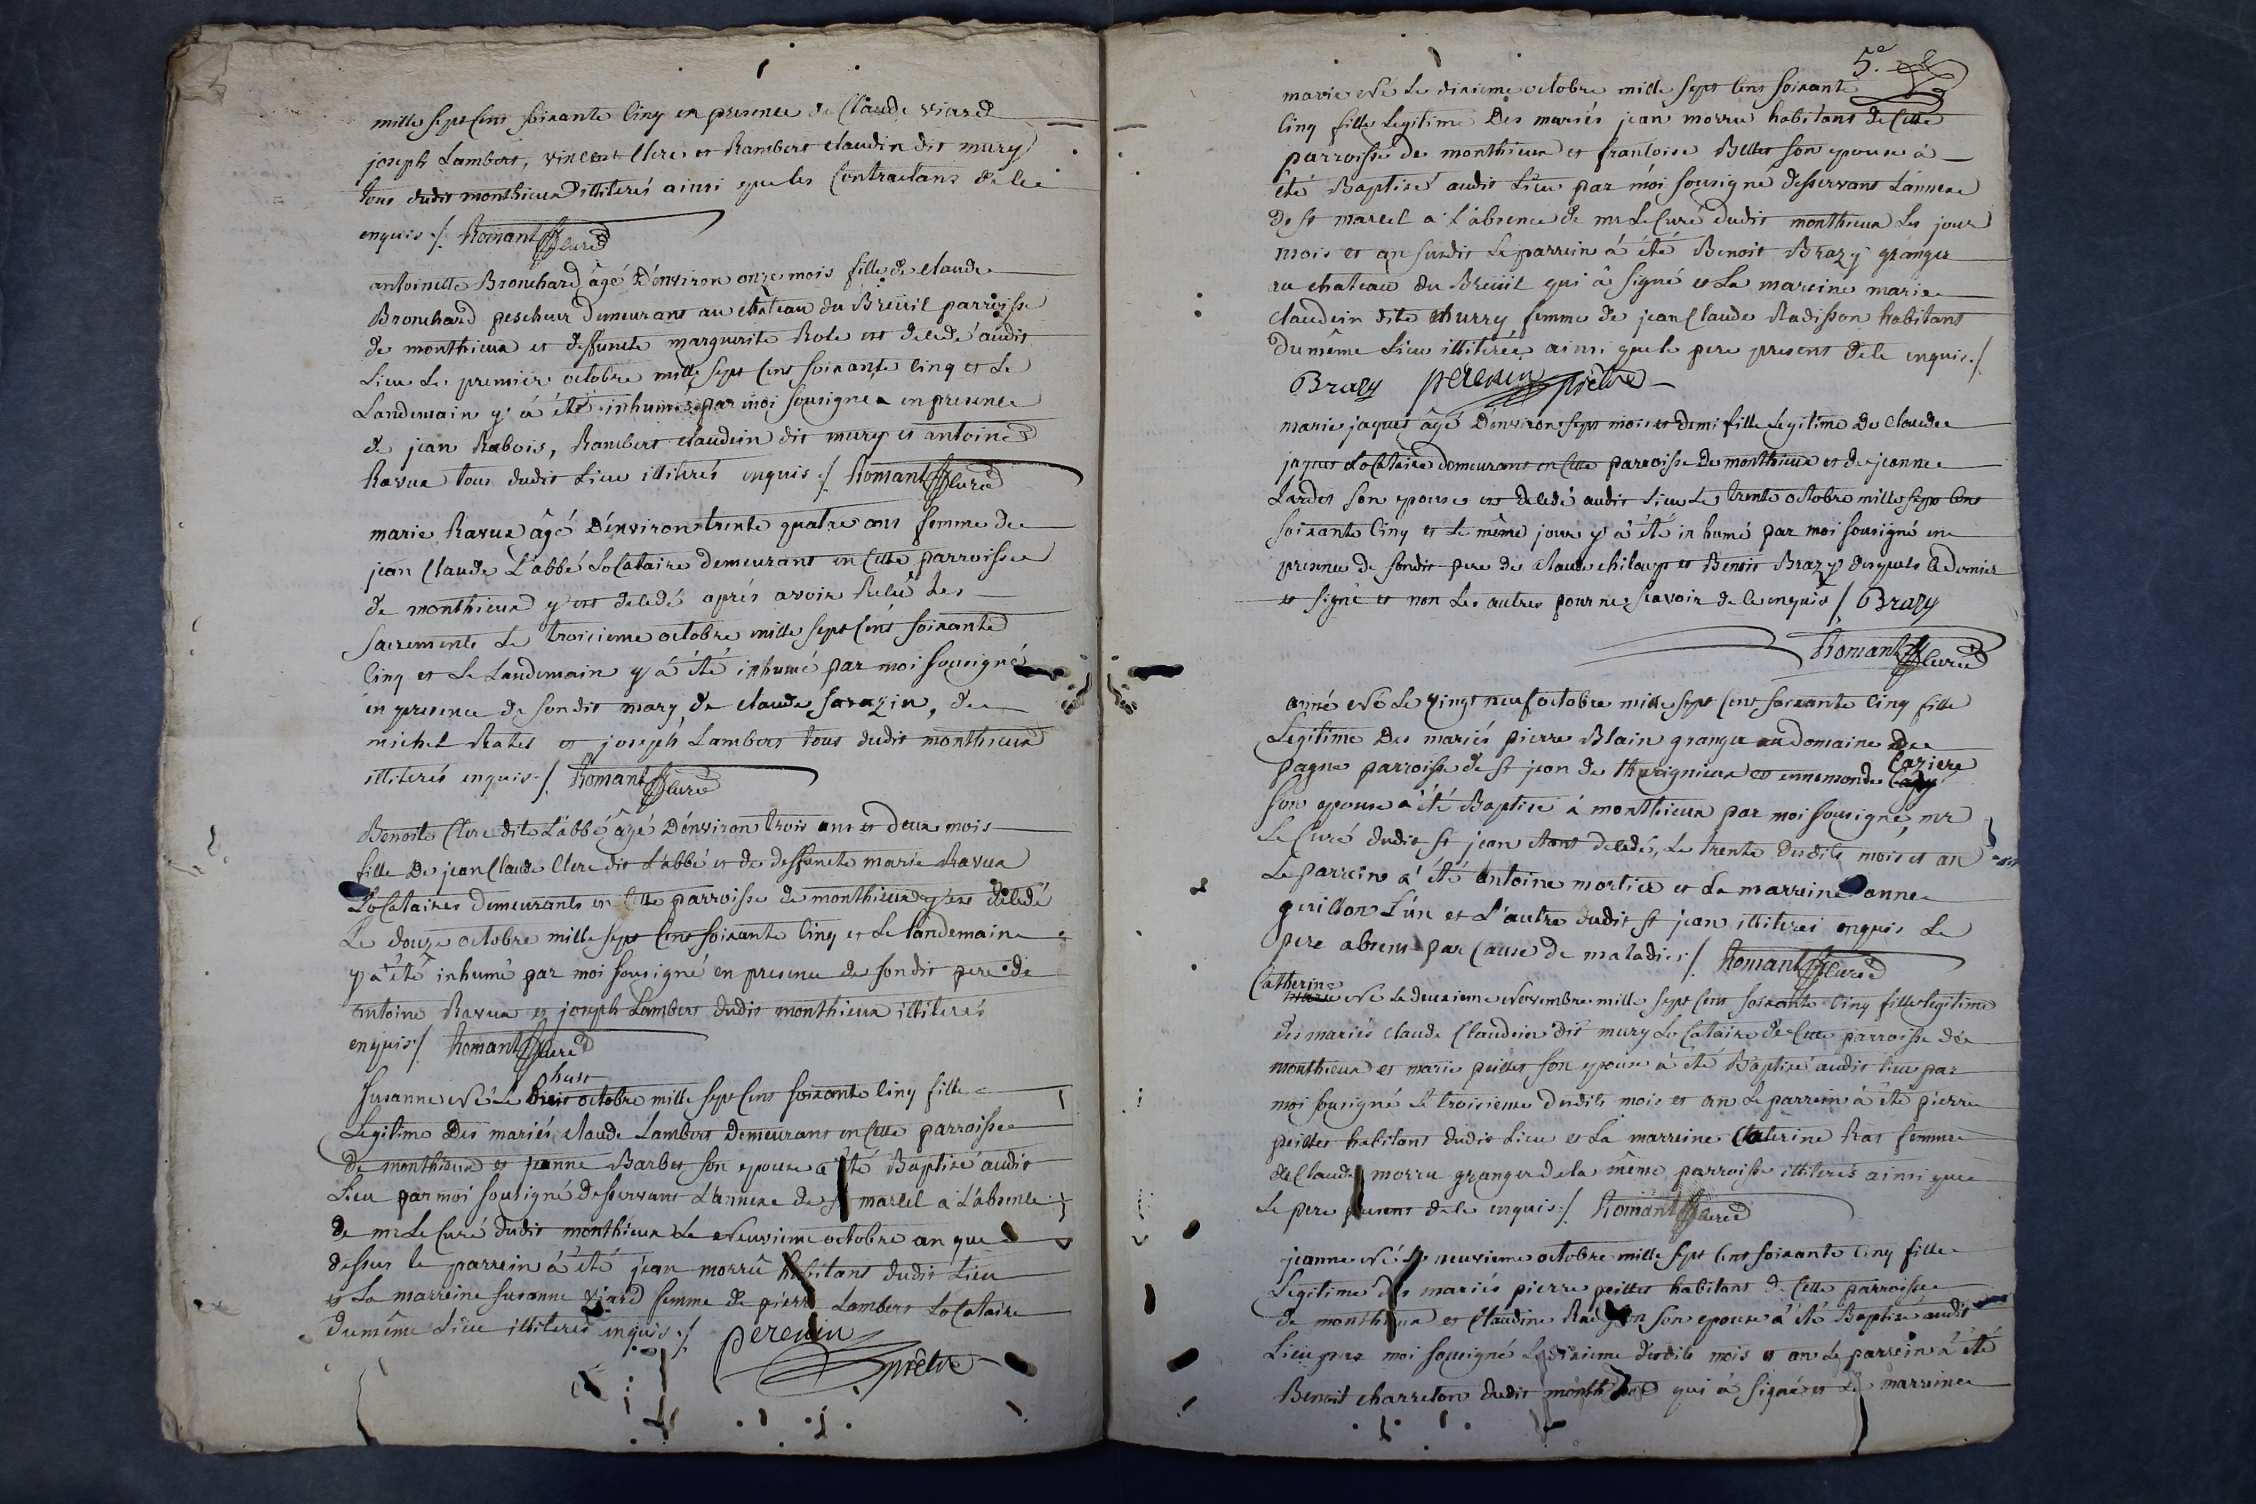 mille sept Cent soixante Cinq en presence de Claude viard
joseph Lambert, vincent Clere et Rambert claudin dit mury
tous dudit monthieux illiterés ainsi que les Contractans de ce
enquis ./. Romant Curé
antoinette Brouchard âgé D'environ onze mois fille de claude
Brouchard pescheur demeurant au chateau du Breüil parroisse
de monthieux et deffuncte marguerite Role est decedé audit
Lieu Le premier octobre mille sept Cent soixante Cinq et Le
Landemain y à été inhumé par moi sousigné en presence
de jean Rabois, Rambert claudin dit mury et antoine
Ravux tous dudit Lieu illiterés enquis ./. Romant Curé
marie Ravux âgé D'environ trente quatre ans femme de
jean Claude L'abbé LoCataire demeurant en Cette parroisse
de monthieux y est decedé aprés avoir Reçû Les
sacrements Le troisieme octobre mille sept Cent soixante
Cinq et Le Landemain y à été inhumé par moi sousigné
en presence de sondit mary, de claude sarazin, de
michel Rates et joseph Lambert tous dudit monthieux
illiterés enquis ./. Romant Curé
Benoite Clere dite L'abbé âgé D'environ trois ans et deux mois
fille De jean Claude Clere dit L'abbé et de deffuncte marie Ravux
LoCataires demeurants en Cette parroisse de monthieux y est decedé
Le douze octobre mille sept Cent soixante Cinq et Le landemain
y a été inhumé par moi sousigné en presence de sondit pere de
antoine Ravux et joseph Lambert dudit monthieux illiterés
enquis ./. Romant Curé
huit
susanne Né Le octobre mille sept Cent soixante Cinq fille
Legitime Des mariés claude Lambert demeurant en Cette parroisse
de monthieux et jeanne Barbet son epouse a été Baptisé audit
Lieu par moi sousigné desservant L'annexe de st marcel a L'absence
de mr Le Curé dudit monthieux Le Neuvieme octobre an que
dessus le parrein à été jean morru habitant dudit Lieu
et La marreine susanne viard femme de pierre Lambert LoCataire
du même Lieu illiterés enquis ./. perenin
prêtre
5.e
marie Né Le dixieme octobre mille sept Cent soixante
Cinq fille Legitime Des mariés jean morru habitant de Cette
parroisse de monthieux et françoise Bellet son epouse à
été Baptisé audit Lieu par môi sousigné desservant L'annexe
de st marcel a L'absence de mr Le Curé dudit monthieux Les jour
mois et an susdit Le parrein à été Benoit Brazy granger
au chateau du Breüil qui à signé et La mareine marie
claudin dite Murry femme de jean Claude Radisson habitant
du même Lieu illiterée ainsi que le pere present de ce enquis ./.
Brazy perenin prêtre
marie jaquet âgé D'environ sept mois et demi fille Legitime De claude
jaquet LoCataire demeurant en Cette parroisse de monthieux et de jeanne
Lardet son epouse est decedé audit Lieu Le trente octobre mille sept Cent
soixante Cinq et Le même jour y à été inhumé par moi sousigné en
presence de sondit pere de claude chiloup et Benoit Brazy desquels Le dernier
et signé et non Les autres pour ne sçavoir de ce enquis / Brazy
Romant Curé
anne Né Le vingt neuf octobre mille sept Cent soixante Cinq fille
Legitime Des mariés pierre Blain granger au domaine de
pagne parroisse de st jean de thurignieux et ennemonde Caziere
son epouse a été Baptisé à monthieux par moi sousigné, mr
Le Curé dudit st jean étant decedé, Le trente desdits mois et an
Le parrein à été antoine mortier et La marreine anne
guillon L'un et L'autre dudit st jean illiterés enquis Le
pere absent par Cause de maladie ./. Romant Curé
Catherine
Né Le deuxieme Novembre mille sept Cent soixante Cinq fille legitime
des mariés claude Claudin dit mury LoCataire de Cette parroisse de
monthieux et marie peillet son epouse à été Baptisé audit lieu par
moi sousigné Le troisieme desdits mois et an Le parrein à été pierre
peillet habitant dudit Lieu et La marreine Caterine Ras femme
de Claude morru granger de la même parroisse illiterés ainsi que
Le pere present de ce enquis ./. Romant Curé
jeanne Né Le neuvieme octobre mille sept Cent soixante Cinq fille
Legitime des mariés pierre peillet habitant de Cette parroisse
de monthieux et Claudine son epouse à été Baptisé audit
Lieu par moi sousigné Le dixieme desdits mois et an Le parrein à été
Benoit charreton dudit monthieux qui à signé et La marreine